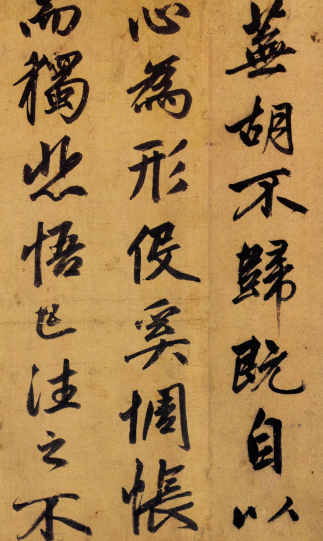 蕪胡不歸既自以
心為形役奚惆悵
而獨悲悟已往之不